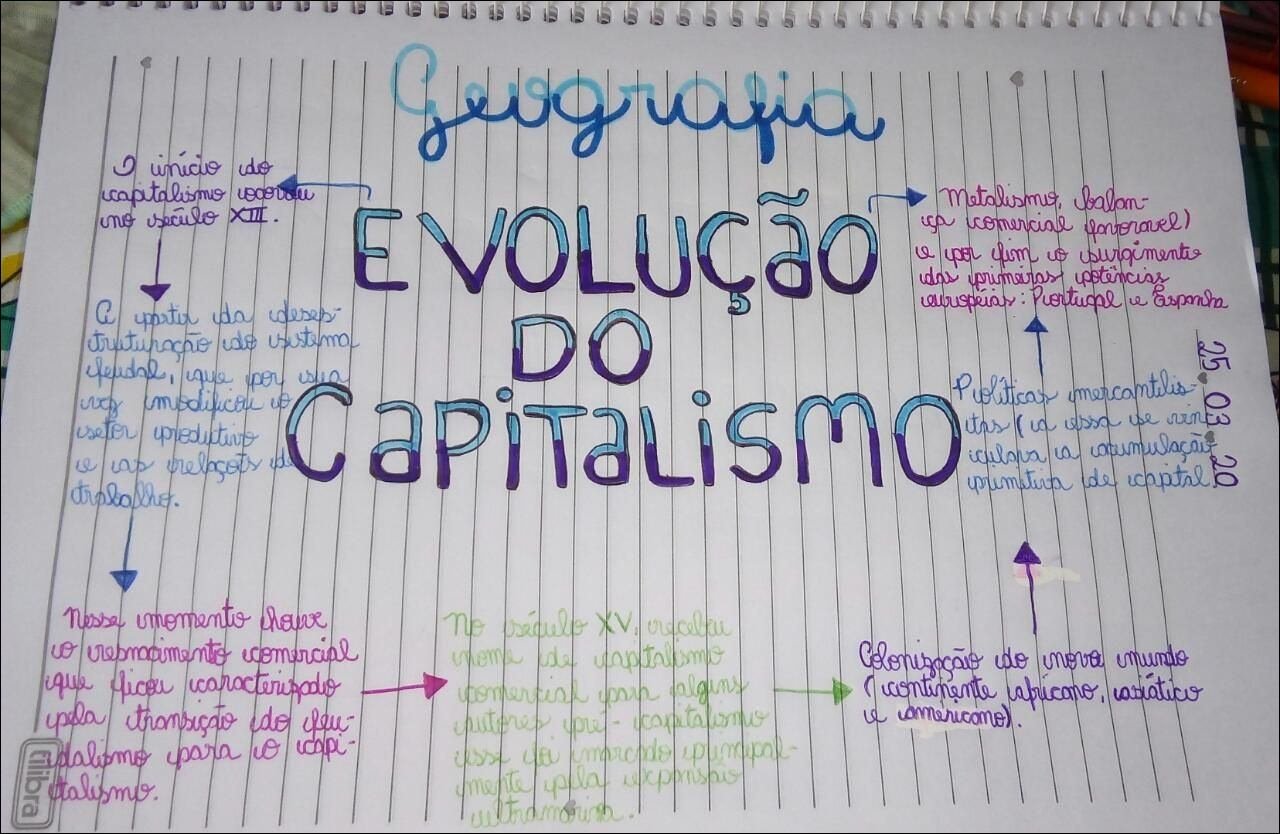 Geografia
EVOLUÇÃO
DO
CAPITALISMO
O início do
capitalismo ocorreu
no século XIII.
A partir da deses-
truturação do sistema
feudal, que por sua
vez modificou o
setor produtivo
e as relações de
trabalho.
Nesse momento houve
o renascimento comercial
que ficou caracterizado
pela transição do feu-
dalismo para o capi-
talismo.
No século XV, recebeu
nome de capitalismo
comercial para alguns
autores pré-capitalismo
esse foi marcado principal-
mente pela expansão
ultramarina.
Colonização do novo mundo
(continente africano, asiático
e americano).
Políticas mercantilis-
tas (a essa se vin
culava a acumulação
primitiva de capital.
Metalismo, balan-
ça comercial favoravel)
e por fim o surgimento
das primeiras potências
européias: Portugal e Espanha
25 03 20
tilibra